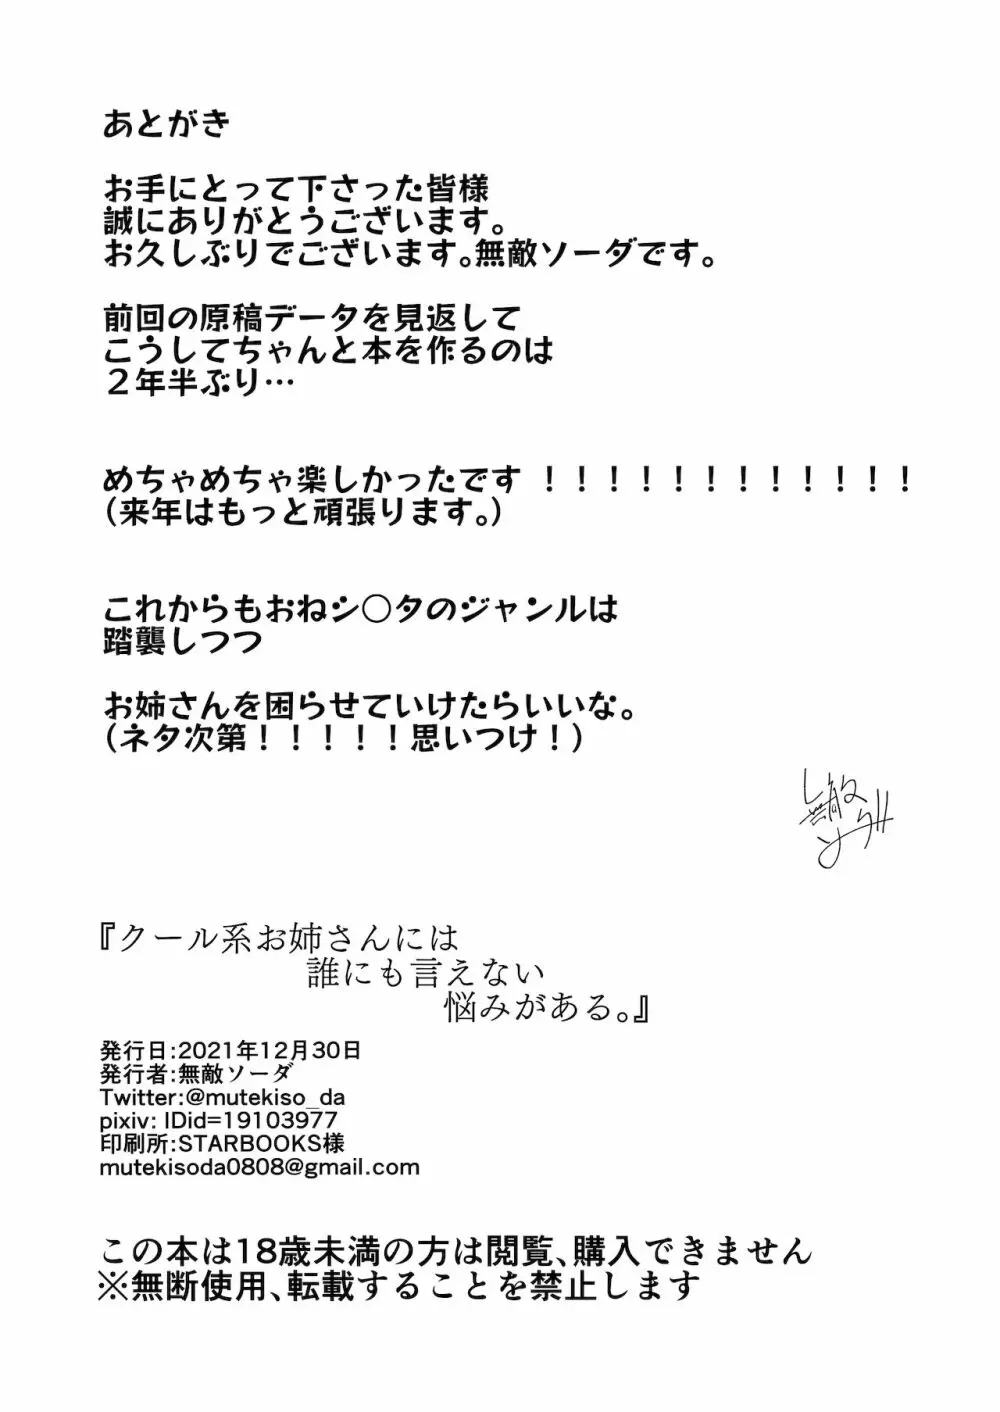 あとがき
お手にとって下さった皆様
誠にありがとうございます。
お久しぶりでございます。無敵ソーダです。
前回の原稿データを見返して
こうしてちゃんと本を作るのは
２年半ぶり…
めちゃめちゃ楽しかったです！！！！！！！！！！！！
（来年はもっと頑張ります。）
これからもおねシ〇タのジャンルは
踏襲しつつ
お姉さんを困らせていけたらいいな。
（ネタ次第！！！！！思いつけ！）
『クール系お姉さんには
誰にも言えない
悩みがある。』
発行日:2021年12月30日
発行者:無敵ソーダ
Twitter:@mutekiso_da
pixiv: IDid=19103977
印刷所:STARBOOKS様
mutekisoda0808@gmail.com
この本は18歳未満の方は閲覧、購入できません
※無断使用、転載することを禁止します